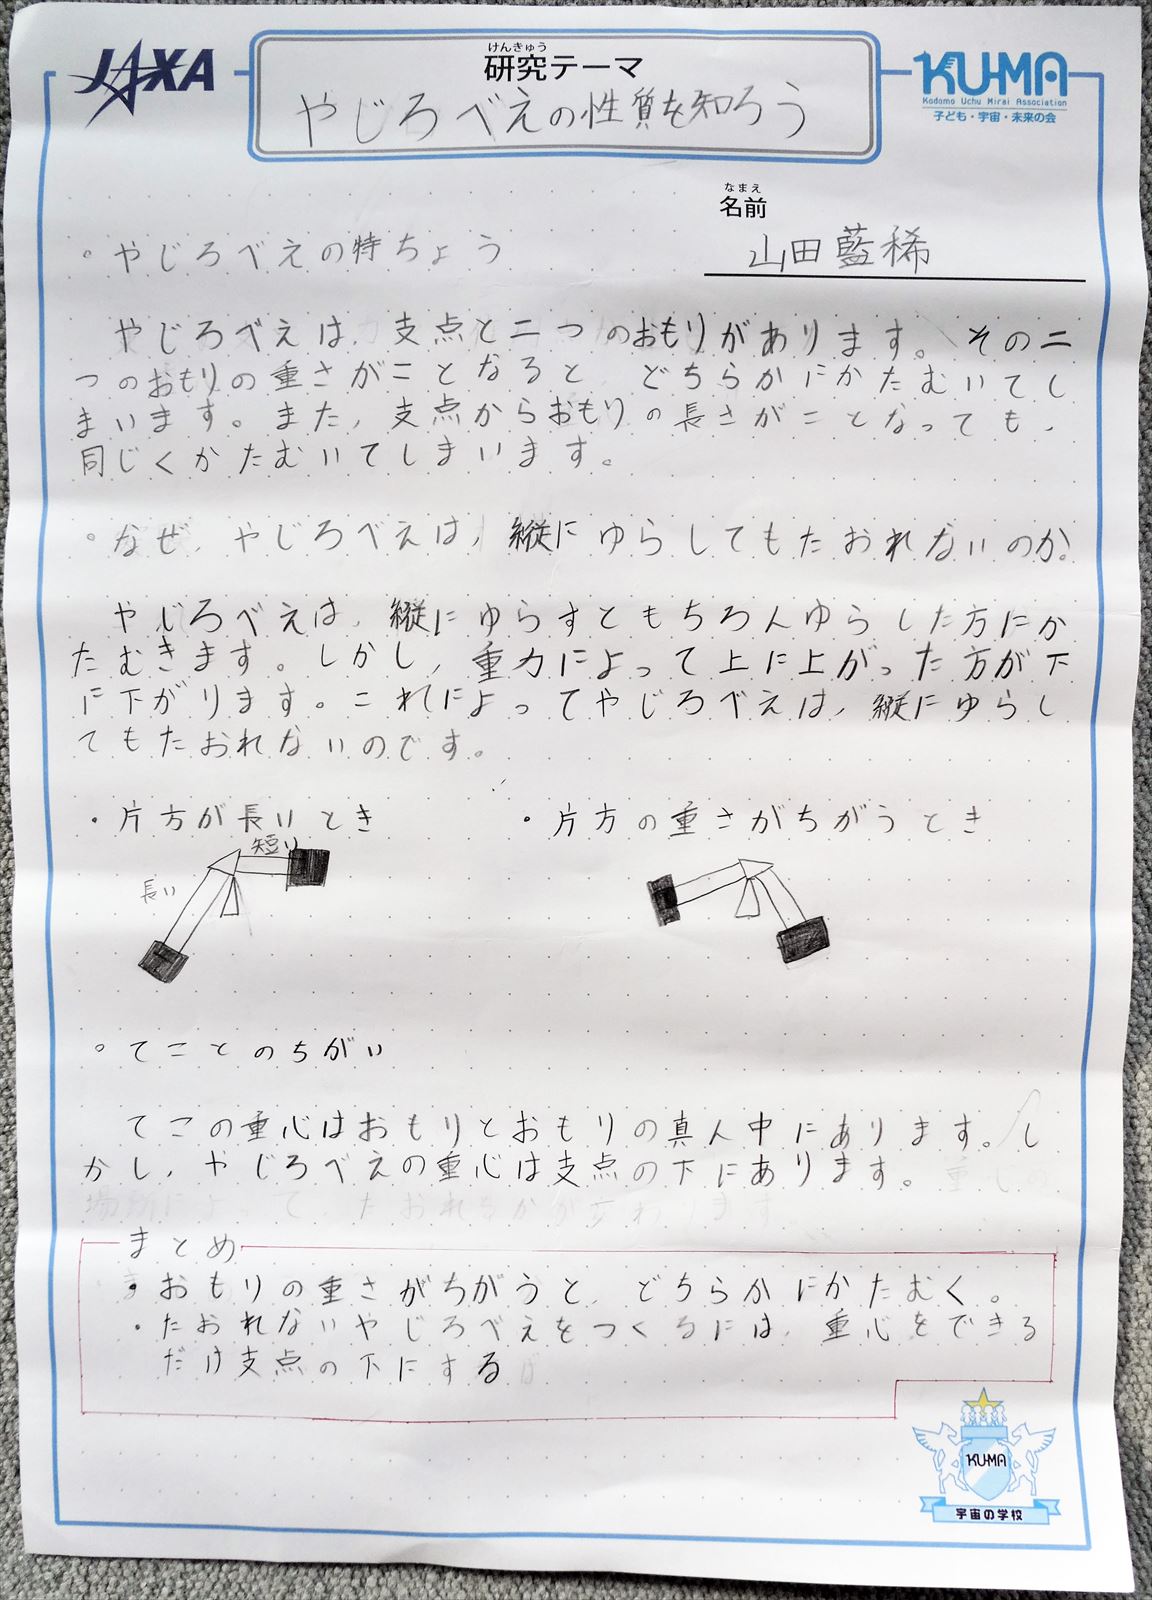 JAXA
けんきゅう
研究テーマ
やじろべえの性質を知ろう
KU-MA
Kodomo Uchu Mirai Association
子ども・宇宙・未来の会
なまえ
名前
山田藍稀
。やじろべえの特ちょう
やじろべえは、支点と二つのおもりがあります。その二
つのおもりの重さがことなると、どちらかにかたむいてし
まいます。また、支点からおもりの長さがことなっても、
同じくかたむいてしまいます。
。なぜ、やじろべえは、縦にゆらしてもたおれないのか。
やじろべえは、縦にゆらすともちろんゆらした方にか
たむきます。しかし、重力によって上に上がった方が下
に下がります。これによってやじろべえは、縦にゆらし
てもたおれないのです。
・片方が長いとき
・片方の重さがちがうとき
短い
長い
。てことのちがい
てこの重心はおもりとおもりの真ん中にあります。し
かし、やじろべえの重心は支点の下にあります。重心の
場所によって、たおれるかが変わります。
まとめ
・おもりの重さがちがうと、どちらかにかたむく。
・たおれないやじろべえをつくるには、重心をできる
だけ支点の下にする
KU-MA
宇宙の学校